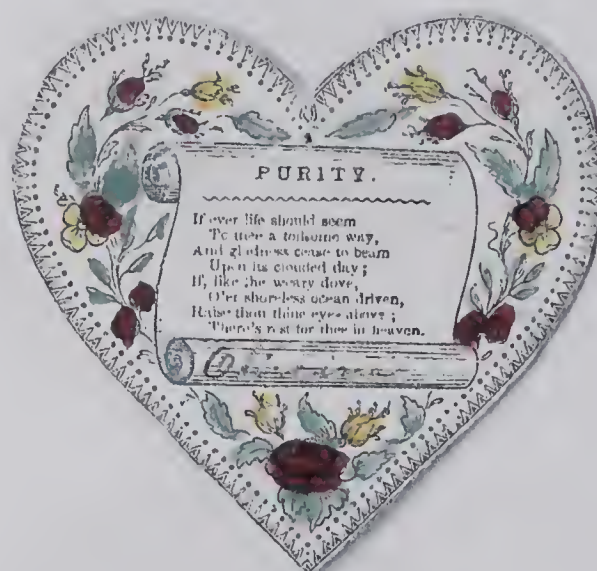 PURITY.
If ever life should seem
To thee a toilsome way,
And gladness cease to beam
Upon its clouded day;
If, like the weary dove,
O'er shoreless ocean driven,
Raise thou thine eyes above;
There's rest for thee in heaven.